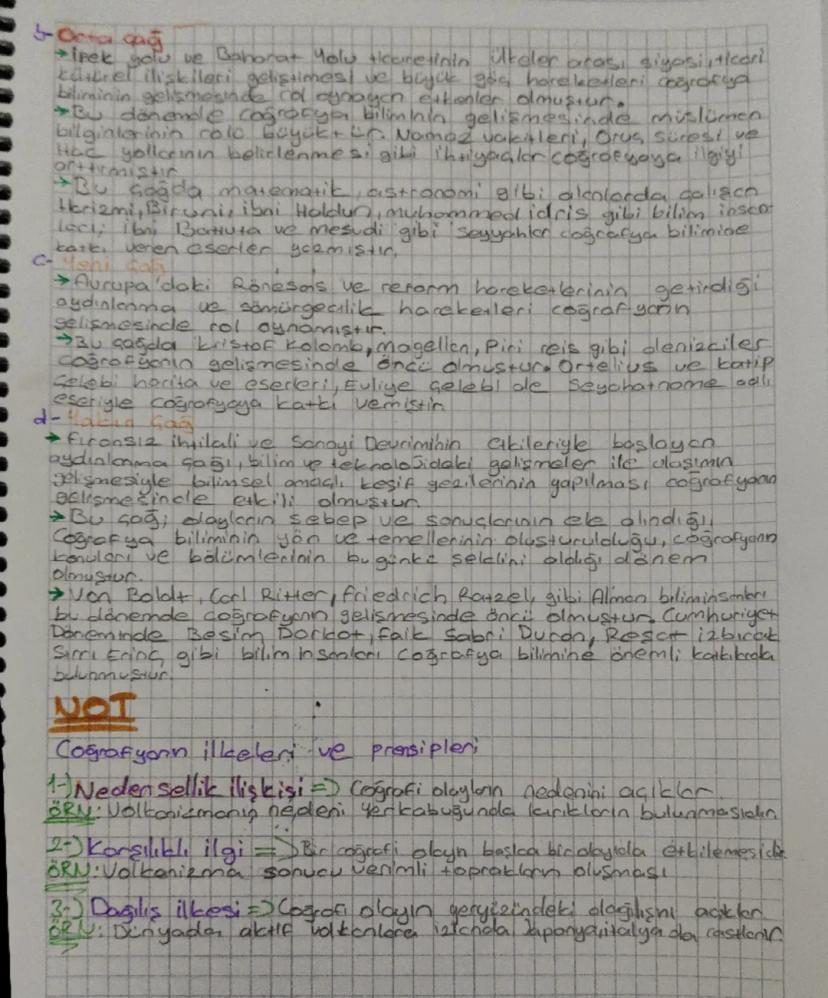 b- Orta çağ
→ İpek yolu ve Baharat Yolu ticaretinin Ülkeler arası siyasi, ticari
kültürel ilişkileri geliştirmesi ve büyük göç hareketleri coğrafya
biliminin gelişmesinde rol oynayan etkenler olmuştur.
→ Bu dönemde coğrafya biliminin gelişmesinde müslüman
bilginlerinin rolü büyüktür. Namaz vakitleri, Oruç süresi ve
Hac yollarının belirlenmesi gibi ihtiyaçlar coğrafyaya ilgiyi
arttırmıştır
→ Bu çağda matematik, astronomi gibi alanlarda çalışan
Harizmi, Biruni, ibni Haldun, muhammed idris gibi bilim insan
ları, ibni Battuta ve mesudi gibi seyyahlar coğrafya bilimine
katkı veren eserler yazmıştır.
c- Yeni Çağ
→ Avrupa'daki Rönesans ve reform hareketlerinin getirdiği
aydınlanma ve sömürgecilik hareketleri coğrafyanın
gelişmesinde rol oynamıştır.
→ Bu çağda kristof kolomb, magellan, Piri reis gibi denizciler
coğrafyanın gelişmesinde öncü olmuştur. Ortelius ve katip
çelebi harita ve eserleri, Evliye çelebi de Seyahatname adlı
eseriyle coğrafyaya katkı vermiştir
d- Yakın Çağ
→ firansız ihtilali ve Sanayi Devriminin etkileriyle başlayan
aydınlanma çağı, bilim ve teknolojideki gelişmeler ile ulaşımın
gelişmesiyle bilimsel amaçlı keşif gezilerinin yapılması coğrafyanın
gelişmesinde etkili olmuştur.
→ Bu çağ; olayların sebep ve sonuçlarının ele alındığı,
Coğrafya biliminin yön ve temellerinin oluşturulduğu, coğrafyanın
konuları ve bölümlerinin bugünkü şeklini aldığı dönem
olmuştur.
→ Von Boldt, Carl Ritter, friedrich Ratzel, gibi Alman biliminsanları
bu dönemde coğrafyanın gelişmesinde öncü olmuştur. Cumhuriyet
Döneminde Besim Darkot, faik Sabri Duran, Reşat izbırak
Sırrı Erinç, gibi bilim insanları coğrafya bilimine önemli katkılarda
bulunmuştur.
NOT
Coğrafyanın ilkeleri ve prensipleri
1-) Nedensellik ilişkisi => Coğrafi olayların nedenini açıklar.
ÖRN: Volkanizmanın nedeni yerkabuğunda kırıkların bulunmasıdır
2-) Karşılıklı ilgi => Bir coğrafi olayın başka bir olayıda etkilemesidir
ÖRN: Volkanizma sonucu verimli toprakların oluşması
3-) Dağılış ilkesi => Coğrafi olayın yeryüzündeki dağılışını açıklar
ÖRN: Dünyada aktif volkanlara izlanda Japonya italya da rastlanır.